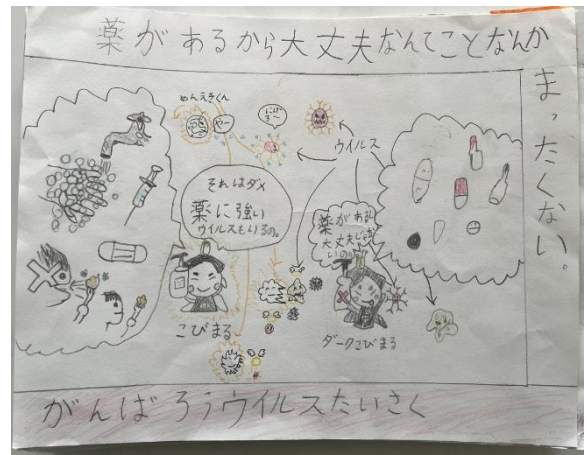 薬があるから大丈夫なんてことなんか
まったくない。
めんえきくん
やー
にげろ〜
ウイルス
それはダメ
薬に強い
ウイルスもいるの。
薬があるし
大丈夫じゃな
いの?
こびまる
ダークこびまる
がんばろうウイルスたいさく